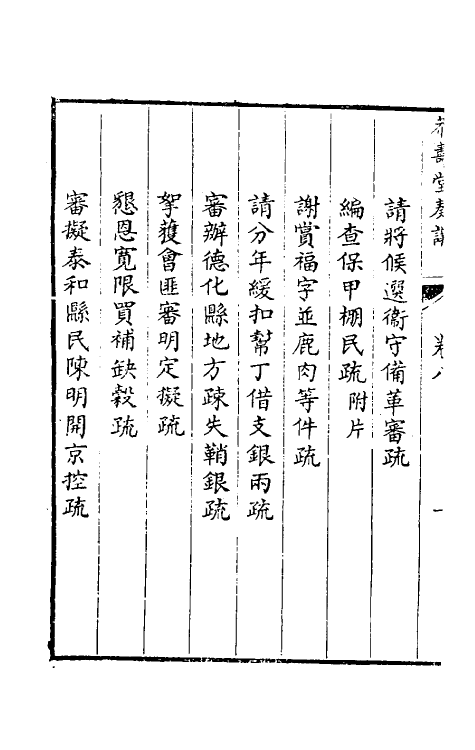 壽堂奏議
卷八
一
請將候選衞守備革審疏
編查保甲棚民疏 附片
謝賞福字並鹿肉等件疏
請分年緩扣幫丁借支銀兩疏
審辦德化縣地方疎失鞘銀疏
拏獲會匪審明定擬疏
懇恩寬限買補缺穀疏
審擬泰和縣民陳明開京控疏